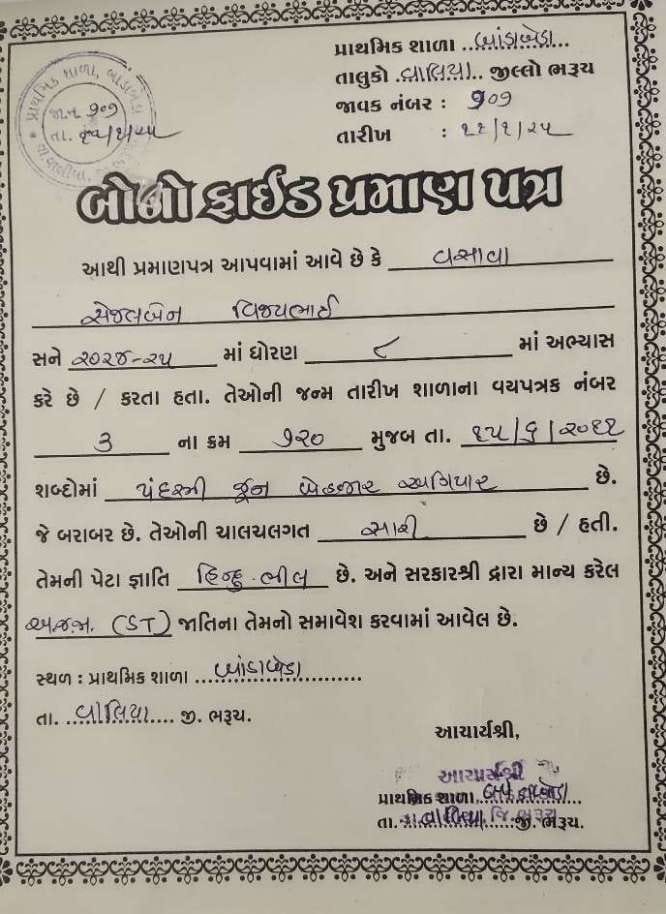 પ્રાથમિક શાળા, બાંડાબેડા
જા.નં. ૧૦૧
તા.
પ્રાથમિક શાળા ..બાંડાબેડા...
તાલુકો ..વાલિયા.. જીલ્લો ભરૂચ
જાવક નંબર : ૧૦૧
તારીખ : ૨૨/૧/૨૫
બોનોફાઈડ પ્રમાણ પત્ર
આથી પ્રમાણપત્ર આપવામાં આવે છે કે વસાવા
સેજલબેન વિજયભાઈ
સને ૨૦૨૪-૨૫ માં ધોરણ ૮ માં અભ્યાસ
કરે છે / કરતા હતા. તેઓની જન્મ તારીખ શાળાના વયપત્રક નંબર
૩ ના ક્રમ ૧૨૦ મુજબ તા. ૧૫/૬/૨૦૧૧
શબ્દોમાં પંદરમી જૂન બેહજાર અગિયાર છે.
જે બરાબર છે. તેઓની ચાલચલગત સારી છે / હતી.
તેમની પેટા જ્ઞાતિ હિન્દુ ભીલ છે. અને સરકારશ્રી દ્વારા માન્ય કરેલ
અ.જ.જા. (ST) જાતિના તેમનો સમાવેશ કરવામાં આવેલ છે.
સ્થળ : પ્રાથમિક શાળા ..બાંડાબેડા..........
તા. ...વાલિયા.... જી. ભરૂચ.
આચાર્યશ્રી,
આચાર્યશ્રી
પ્રાથમિક શાળા
તા. વાલિયા જી. ભરૂચ.